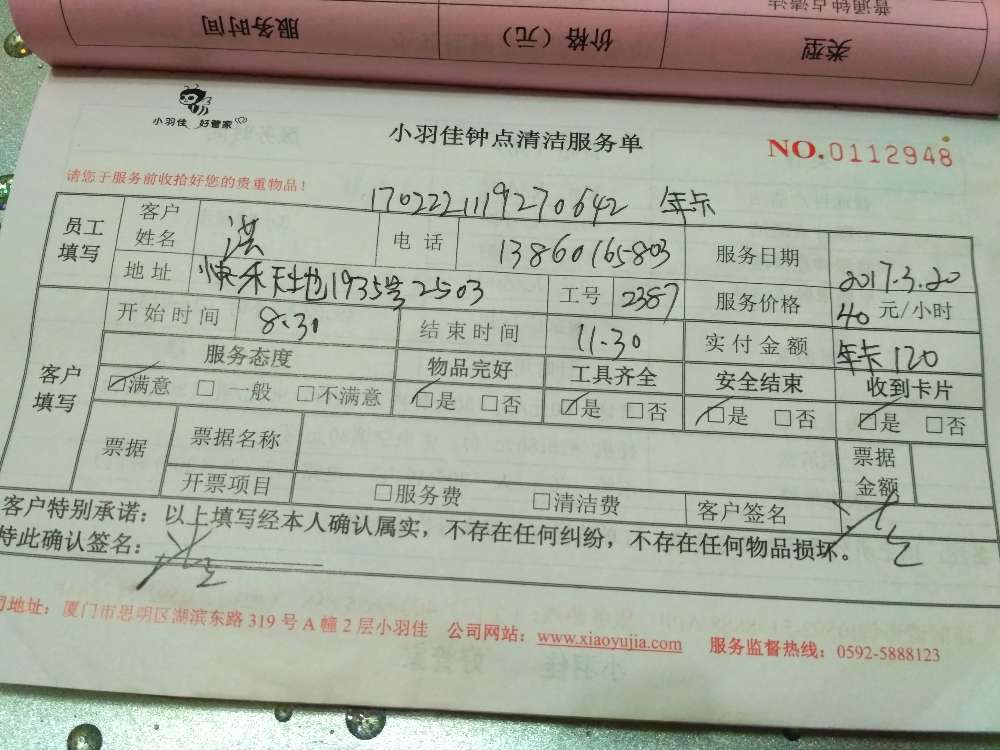 普通钟点清洁
类型 价格（元） 服务时间
小羽佳 好管家
小羽佳钟点清洁服务单
NO.0112948
请您于服务前收拾好您的贵重物品！
1702221119270642 年卡
员工填写 客户姓名 洪 电话 13860165803 服务日期 2017.3.20
地址 快乐天地1935号2503 工号 2387 服务价格 40元/小时
客户填写 开始时间 8.30 结束时间 11.30 实付金额 年卡120
服务态度 物品完好 工具齐全 安全结束 收到卡片
☑满意 □一般 □不满意 ☑是 □否 ☑是 □否 ☑是 □否 ☑是 □否
票据 票据名称 票据金额
开票项目 □服务费 □清洁费 客户签名
客户特别承诺：以上填写经本人确认属实，不存在任何纠纷，不存在任何物品损坏。
特此确认签名：
司地址：厦门市思明区湖滨东路319号A幢2层小羽佳 公司网站：www.xiaoyujia.com 服务监督热线：0592-5888123